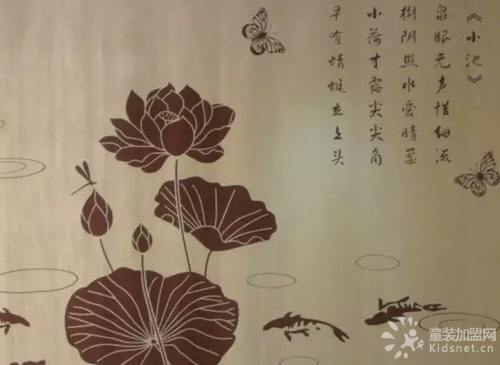 《小池》
泉眼无声惜细流
樹阴照水愛晴柔
小荷才露尖尖角
早有蜻蜓立上头
童装加盟网
Kidsnet.cn